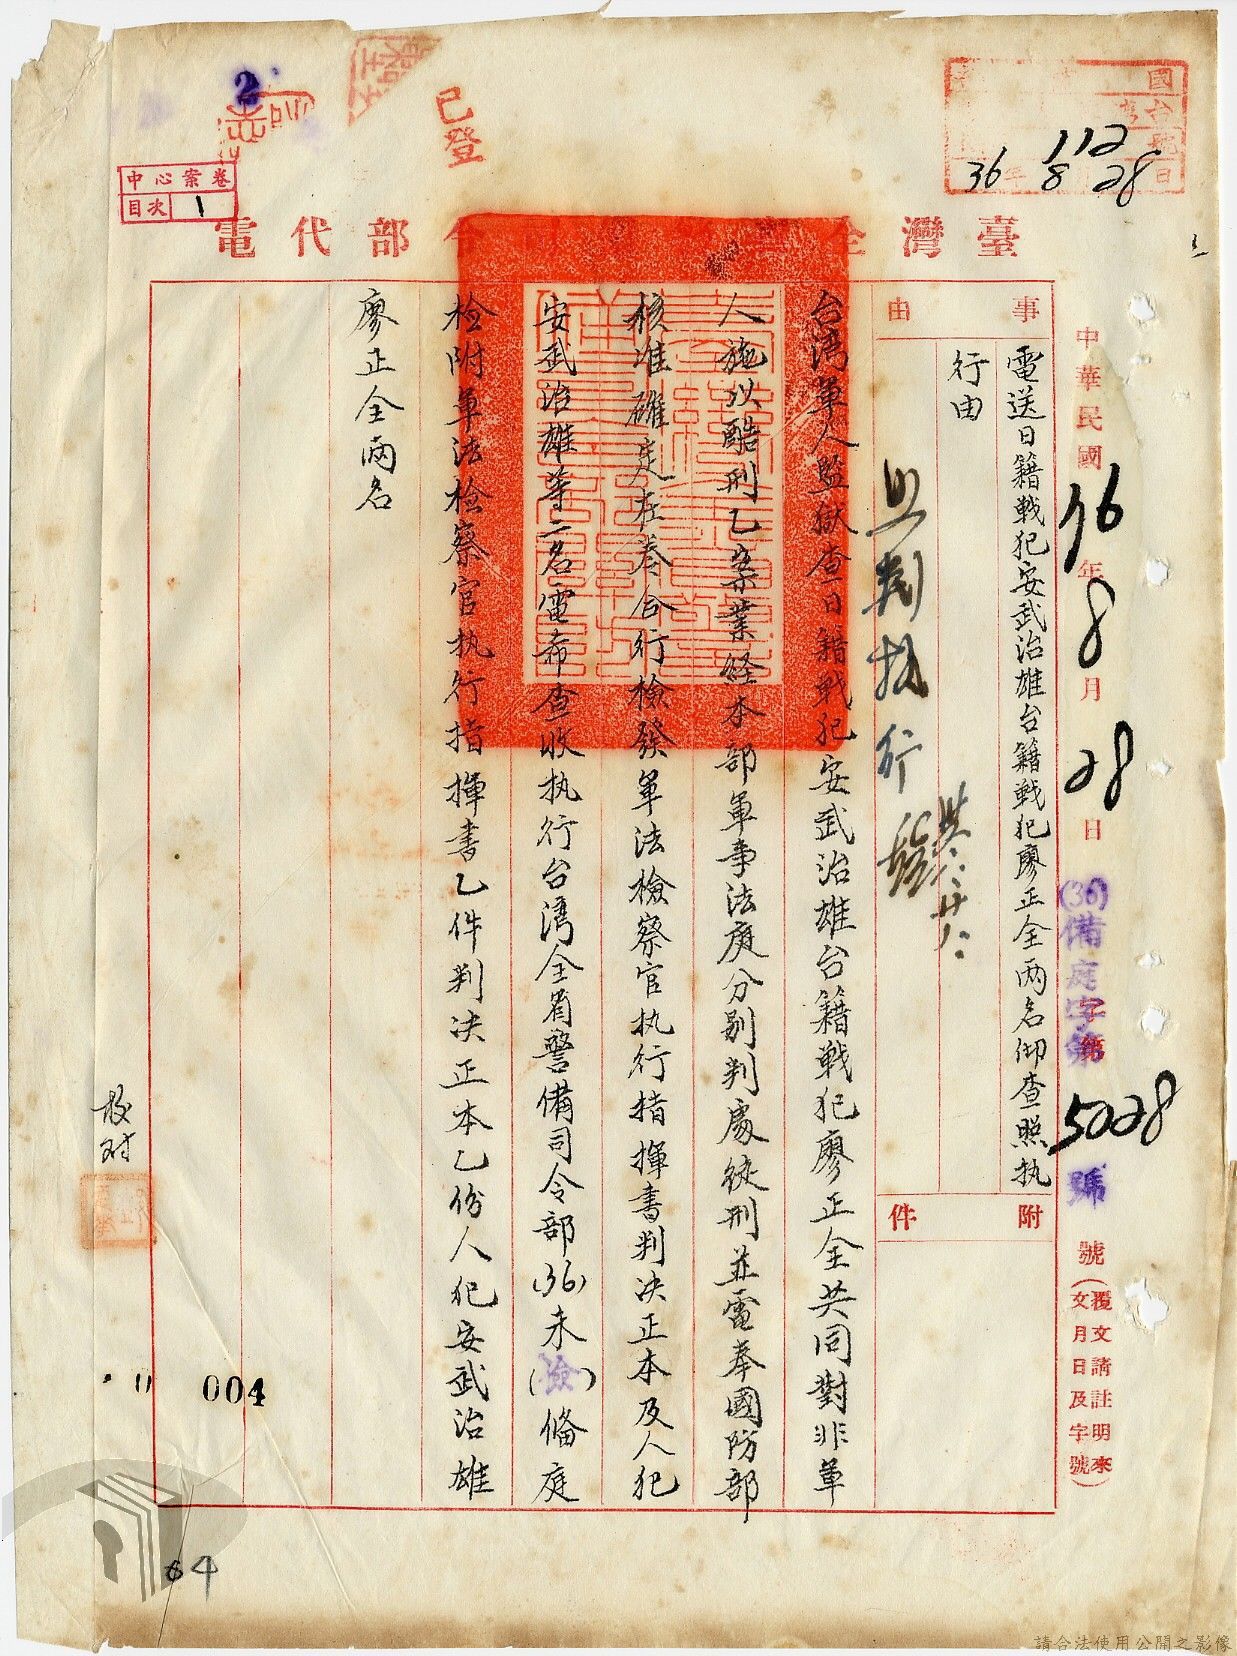 已登
國
台灣
號
日
112
36 8 28
2
中心案卷
目次 1
臺灣全
令部代電
中華民國36年8月28日
(36)備庭字第5028號
號(覆文請註明來文月日及字號)
事由
電送日籍戰犯安武治雄台籍戰犯廖正全兩名仰查照执
行由
附件
照判执行
台湾軍人監獄查日籍戰犯安武治雄台籍戰犯廖正全共同對非軍
人施以酷刑乙案業経本部軍事法庭分别判處徒刑並電奉國防部
核准確定在卷合行檢發軍法檢察官执行指揮書判决正本及人犯
安武治雄等二名電希查收执行台湾全省警備司令部(36)未(檢)俻庭
检附軍法检察官执行指揮書乙件判决正本乙份人犯安武治雄
廖正全兩名
校对
004
64
請合法使用公開之影像